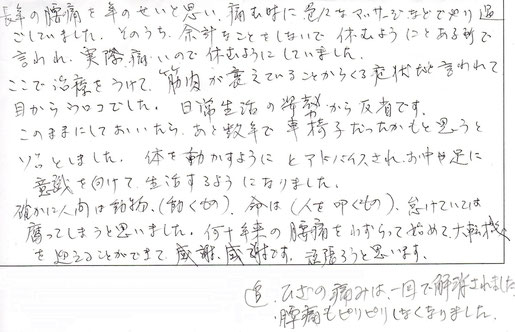 長年の腰痛を年のせいと思い、痛む時に マッサージなどでやり過
ごしていました。そのうち、余計なことをしないで休むようにとある所で
言われ、実際痛いので休むようにしていました。
ここで治療をうけて、筋肉が衰えていることからくる症状だと言われて
目からウロコでした。日常生活の から反省です。
このままにしておいたら、あと数年で車椅子だったかもと思うと
ゾッとしました。体を動かすようにとアドバイスされ、お中や足に
意識を向けて生活するようになりました。
確かに人間は動物、(動くもの)、命は(人を叩くもの)、怠けていては
腐ってしまうと思いました。何十年来の腰痛をわずらって始めて、大転機
を迎えることができて感謝、感謝です。頑張ろうと思います。
追、ひざの痛みは、一回で解消されました。
・腰痛もピリピリしなくなりました。